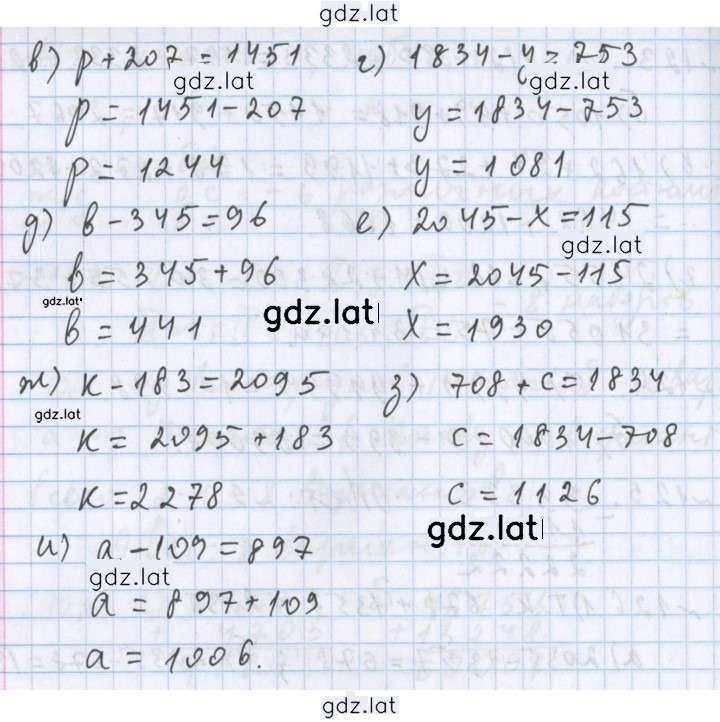 gdz.lat
в) p + 207 = 1451 г) 1834 - y = 753
gdz.lat gdz.lat
p = 1451 - 207 y = 1834 - 753
p = 1244 y = 1081
д) в - 345 = 96 е) 2045 - x = 115
gdz.lat
в = 345 + 96 x = 2045 - 115
gdz.lat gdz.lat
в = 441 x = 1930
ж) к - 183 = 2095 з) 708 + с = 1834
gdz.lat
к = 2095 + 183 с = 1834 - 708
к = 2278 с = 1126
gdz.lat
и) а - 109 = 897
gdz.lat
а = 897 + 109
а = 1006.
gdz.lat